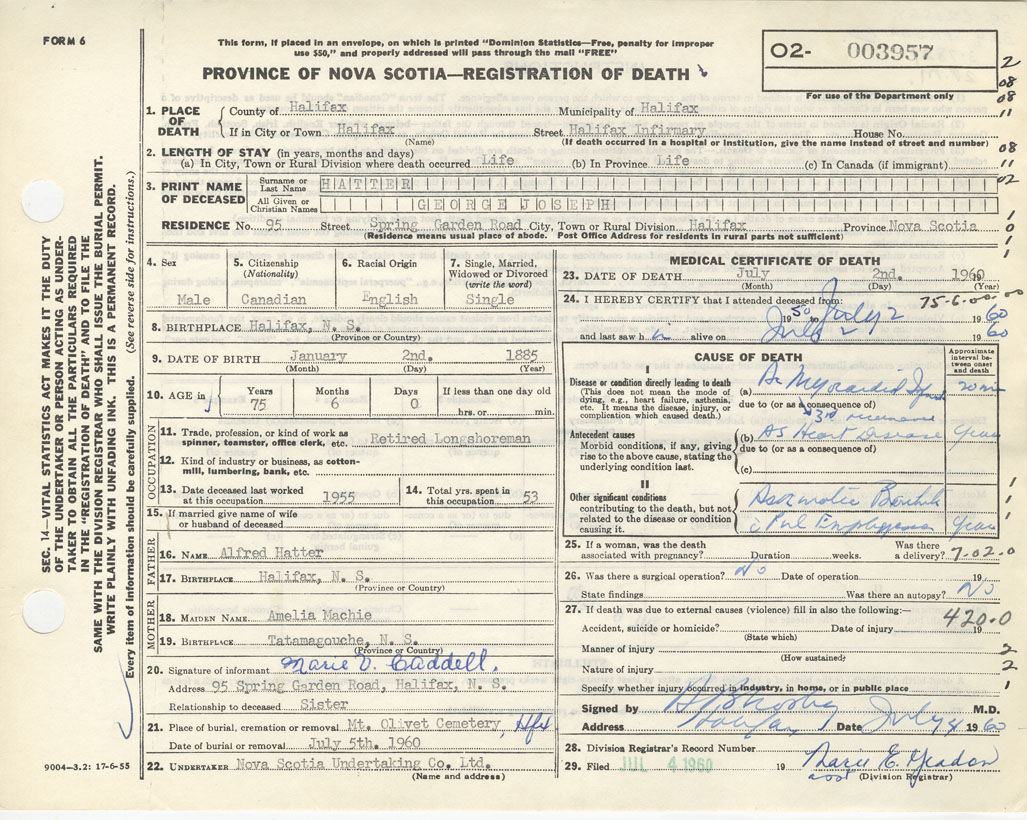 FORM 6
This form, if placed in an envelope, on which is printed "Dominion Statistics—Free, penalty for improper
use $50," and properly addressed will pass through the mail "FREE"
PROVINCE OF NOVA SCOTIA—REGISTRATION OF DEATH
O2- 003957
For use of the Department only
2
08
08
11
08
11
02
1
0
1
1
SEC. 14—VITAL STATISTICS ACT MAKES IT THE DUTY
OF THE UNDERTAKER OR PERSON ACTING AS UNDER-
TAKER TO OBTAIN ALL THE PARTICULARS REQUIRED
IN THE "REGISTRATION OF DEATH" AND TO FILE THE
SAME WITH THE DIVISION REGISTRAR WHO SHALL ISSUE THE BURIAL PERMIT.
WRITE PLAINLY WITH UNFADING INK. THIS IS A PERMANENT RECORD.
Every item of information should be carefully supplied. (See reverse side for instructions.)
1. PLACE OF DEATH
County of Halifax Municipality of Halifax
If in City or Town Halifax Street Halifax Infirmary House No.
(Name) (If death occurred in a hospital or institution, give the name instead of street and number)
2. LENGTH OF STAY (in years, months and days)
(a) In City, Town or Rural Division where death occurred Life (b) In Province Life (c) In Canada (if immigrant)
3. PRINT NAME OF DECEASED
Surname or Last Name HATTER
All Given or Christian Names GEORGE JOSEPH
RESIDENCE No. 95 Street Spring Garden Road City, Town or Rural Division Halifax Province Nova Scotia
(Residence means usual place of abode. Post Office Address for residents in rural parts not sufficient)
4. Sex 5. Citizenship (Nationality) 6. Racial Origin 7. Single, Married, Widowed or Divorced (write the word)
Male Canadian English Single
8. BIRTHPLACE Halifax, N. S.
(Province or Country)
9. DATE OF BIRTH January 2nd. 1885
(Month) (Day) (Year)
10. AGE in Years Months Days If less than one day old
75 6 0 hrs. or min.
OCCUPATION
11. Trade, profession, or kind of work as
spinner, teamster, office clerk, etc. Retired Longshoreman
12. Kind of industry or business, as cotton-
mill, lumbering, bank, etc.
13. Date deceased last worked at this occupation 1955 14. Total yrs. spent in this occupation 53
15. If married give name of wife
or husband of deceased
FATHER
16. NAME Alfred Hatter
17. BIRTHPLACE Halifax, N. S.
(Province or Country)
MOTHER
18. MAIDEN NAME Amelia Machie
19. BIRTHPLACE Tatamagouche, N. S.
(Province or Country)
20. Signature of informant Marie V. Caddell.
Address 95 Spring Garden Road, Halifax, N. S.
Relationship to deceased Sister
21. Place of burial, cremation or removal Mt. Olivet Cemetery, Hfx
Date of burial or removal July 5th. 1960
22. UNDERTAKER Nova Scotia Undertaking Co. Ltd.
(Name and address)
9004—3.2: 17-6-55
MEDICAL CERTIFICATE OF DEATH
23. DATE OF DEATH July 2nd. 1960
(Month) (Day) (Year)
24. I HEREBY CERTIFY that I attended deceased from: 75-6-00-00
1950 to July 2 1960
and last saw h im alive on July 2 1960
CAUSE OF DEATH
Approximate interval between onset and death
I
Disease or condition directly leading to death
(This does not mean the mode of
dying, e.g., heart failure, asthenia,
etc. It means the disease, injury, or
complication which caused death.)
(a) Ac Myocardial 20 min
due to (or as a consequence of)
3rd
Antecedent causes
Morbid conditions, if any, giving
rise to the above cause, stating the
underlying condition last.
(b) AS Heart Disease Years
due to (or as a consequence of)
(c)
II
Other significant conditions
contributing to the death, but not
related to the disease or condition
causing it.
Asthmatic Bronchitis
Pul Emphysema Years
1
1
1
25. If a woman, was the death
associated with pregnancy? Duration weeks. Was there a delivery? 7-02-0
26. Was there a surgical operation? No Date of operation 19
State findings Was there an autopsy? No
27. If death was due to external causes (violence) fill in also the following:— 420.0
Accident, suicide or homicide? Date of injury 19
(State which)
Manner of injury 2
(How sustained)
Nature of injury 2
Specify whether injury occurred in industry, in home, or in public place 1
Signed by M.D.
Address Halifax Date July 4 1960
28. Division Registrar's Record Number
29. Filed JUL 4 1960 19 Marie E.
asst (Division Registrar)